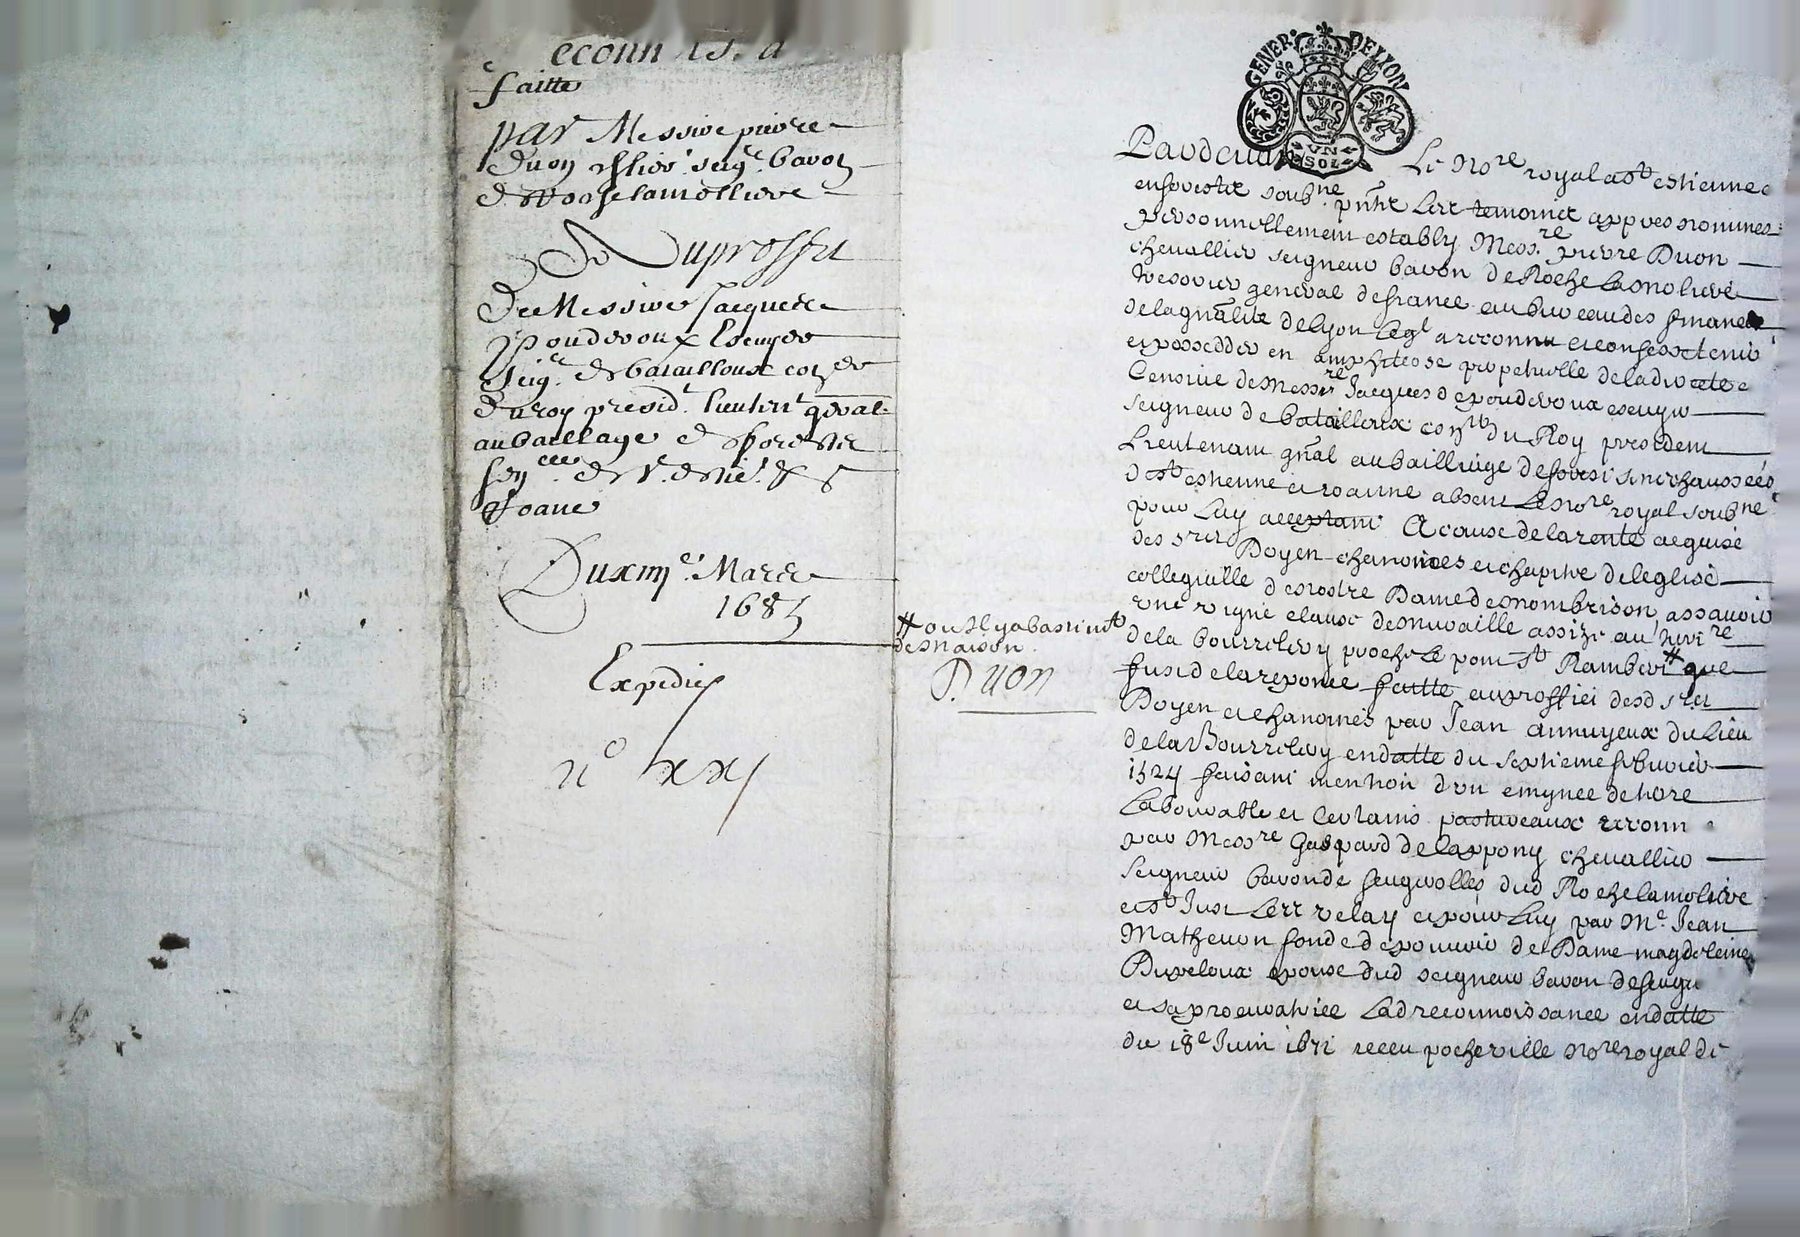 faitte
par Messire pierre
Duon chlier. seigr. baron
de Roche la molliere
Au proffit
De Messire Jacques de
Pouderoux Escuyer
Seigr. de batailloux coner.
du roy presidt. lieutent. gnāl
au baillage de forests
sen.cee de St. Estie. &
Roane
Du xiiiie. Mars
1685
Expedié
no xxj
GENER. DE LYON
UN
SOL
Pardevant Le nore royal a st estienne
en forestz soubzne. pnts Les temoins appres nommes
personnellement estably Messre. pierre Duon
chevallier seigneur baron de Roche La moliere
tresorier general de france au bureau des finances
de la gnālité de Lyon Leql a reconnu et confesse tenir
et posseder en emphiteose perpetuelle de la directe
Censive de Messire Jacques de pouderoux escuyer
seigneur de batailloux coner du Roy president
Lieutenant gnāl au bailliage de forest senechaussées
de st estienne et roanne absent Le nore royal soubzne
pour Luy acceptant A cause de la rente acquise
des srs Doyen chanoines et chapitre de leglise
collegialle de nostre Dame de montbrison, assavoir
une vigne clause de muraille assize au
de la bourrelery proche Le pont st Rambert # que
fust de la reponce faitte au proffict desd srs
Doyen et chanoines par Jean annuyeux du Lieu
de la Bourrelery en datte du septieme febvrier
1524 faisant mention d'un eminee de terre
Labourable et certains pastureaux reconn
par Messre Gaspard de Cappony chevallier
Seigneur baron de feugerolles dud Roche la moliere
et st Just Les velay et pour Luy par Me. Jean
Mathevon fondé de pouvoir de Dame magdeleine
Dupeloux epouse dud seigneur baron de feuge
et sa procuratrice Lad reconnoissance en datte
du 18e Juin 1671 receu pocheville nore royal de
# ou il y a bastimt
de maison
Duon